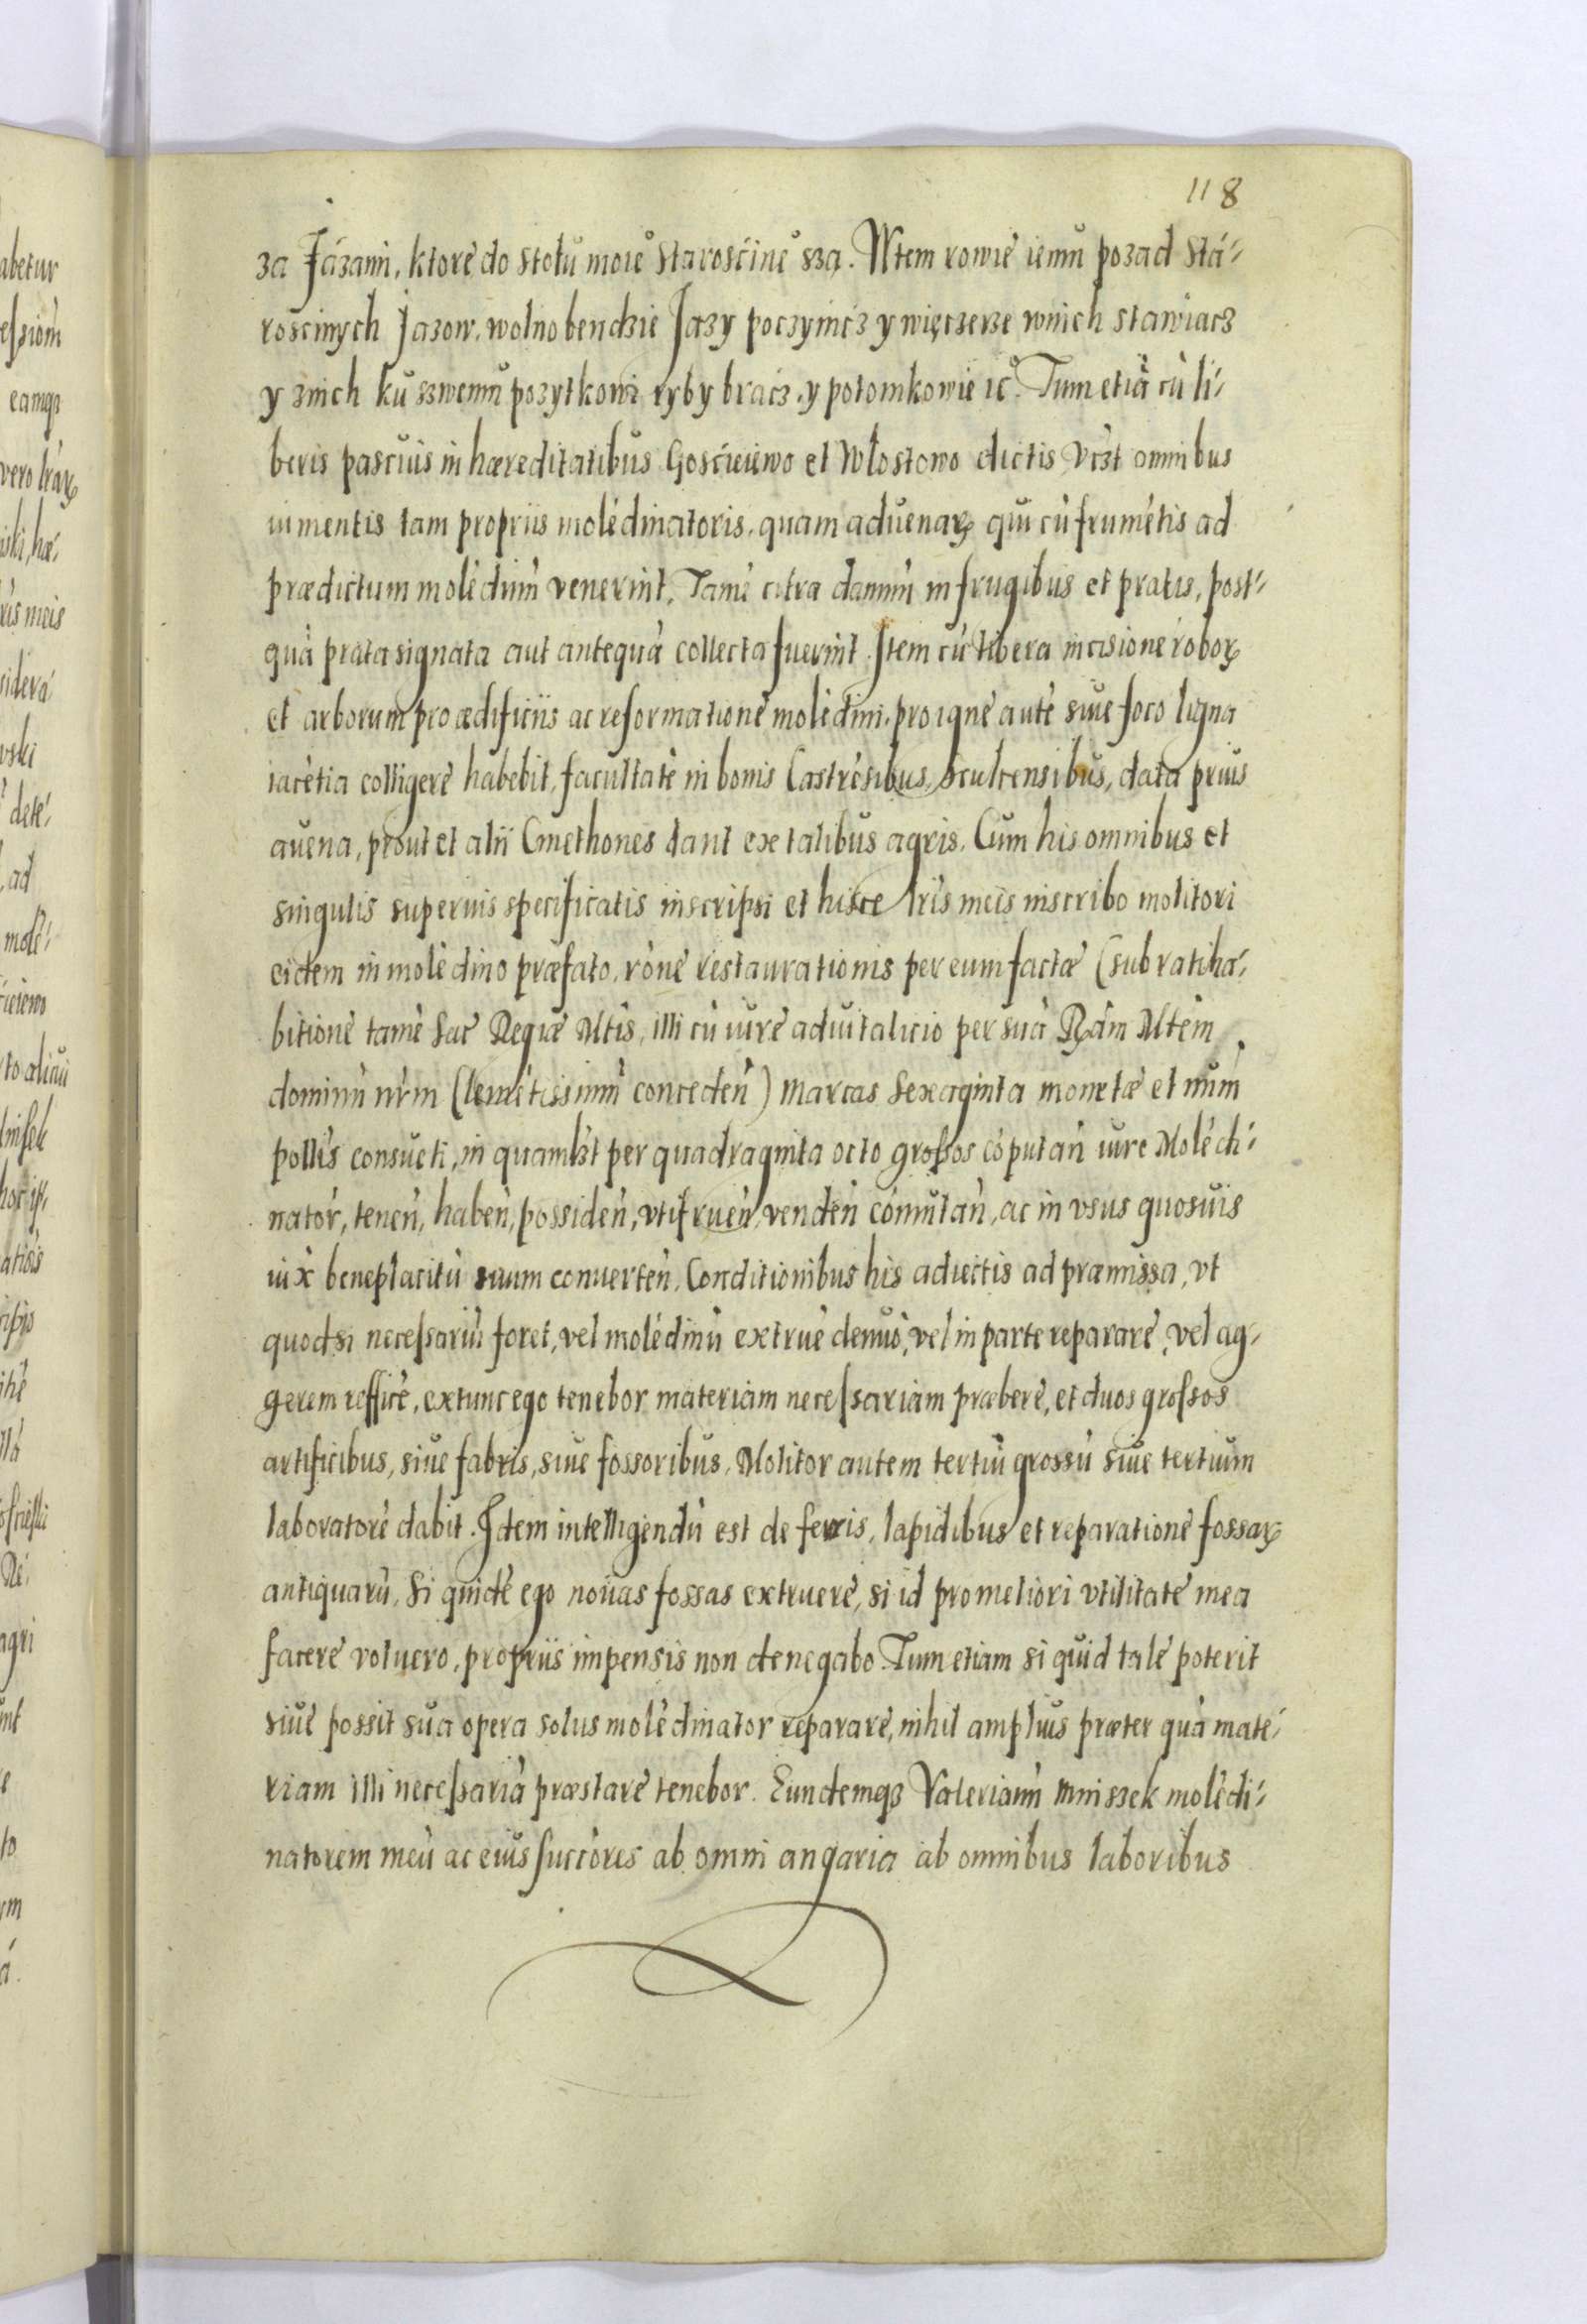 118
za Jázami, ktore do stołu moie̊ Stárościne̊ szą. Wtem rowie iemu pozad Stá-
rościnych Jazow, wolno bendzie Jazy poczynicz y więczerze wnich stawiacz
y znich ku szwemu pozytkowi ryby bracz, y potomkowie ic̊. Tum etiā cū li-
beris pascuis in hæreditatibus Gościeiewo et Włostowo dictis, vcꝫt omnibus
iumentis tam propriis molēdinatoris, quam aduenaꝝ qui cū frumētis ad
prædictum molēdinū venerint, Tamē citra damnū in frugibus et pratis, post-
quā prata signata aut antequā collecta fuerint. Item cū libera incisione roboꝝ
et arborum pro ædificiis ac reformatione molēdini, pro igne autē siue foco ligna
iacētia colligere habebit, facultatē in bonis Castrēsibus, Scultensibus, data prius
auena, prout et alii Cmethones dant ex talibus agris. Cum his omnibus et
singulis superius specificatis inscripsi et hisce lr̄is meis inscribo molitori
eidem in molēdino præfato, rōne restaurationis per eum factæ (sub ratiha-
bitione tamē Sac̄ Regiæ Mtis, illi cū iure aduitalicio per suā R̄am Mtēm
dominū nr̄m Clemētissimū conceden̄) marcas Sexaginta monetæ et num̄
pollis consueti, in quamlꝫt per quadraginta octo grossos cōputan̄ iure Molēdi-
nator̄, tenen̄, haben̄, possiden̄, vtifruen̄, venden̄ cōmutan̄, ac in vsus quosuis
iux̄ beneplacitū suum conuerten̄, Conditionibus his adiectis ad præmissa, vt
quodsi necessariū foret, vel molēdinū extruē denuò, vel in parte reparare, vel ag-
gerem reficē, extunc ego tenebor materiam necessariam præbere, et duos grossos
artificibus, siue fabris, siue fossoribus, Molitor autem tertiū grossū siue tertium
laboratorē dabit. Idem intelligendū est de ferris, lapidibus et reparatione fossaꝝ
antiquarū, Si quidē ego nouas fossas extruere, si id pro meliori vtilitate mea
facere voluero, propriis impensis non denegabo. Tum etiam si quid tale poterit
siue possit sua opera solus molēdinator reparare, nihil amplius præter quā mate-
riam illi necessariā præstare tenebor. Eundemqꝫ Valerianū Mniszek molēdi-
natorem meū ac eius succ̄ores ab omni angaria ab omnibus laboribus